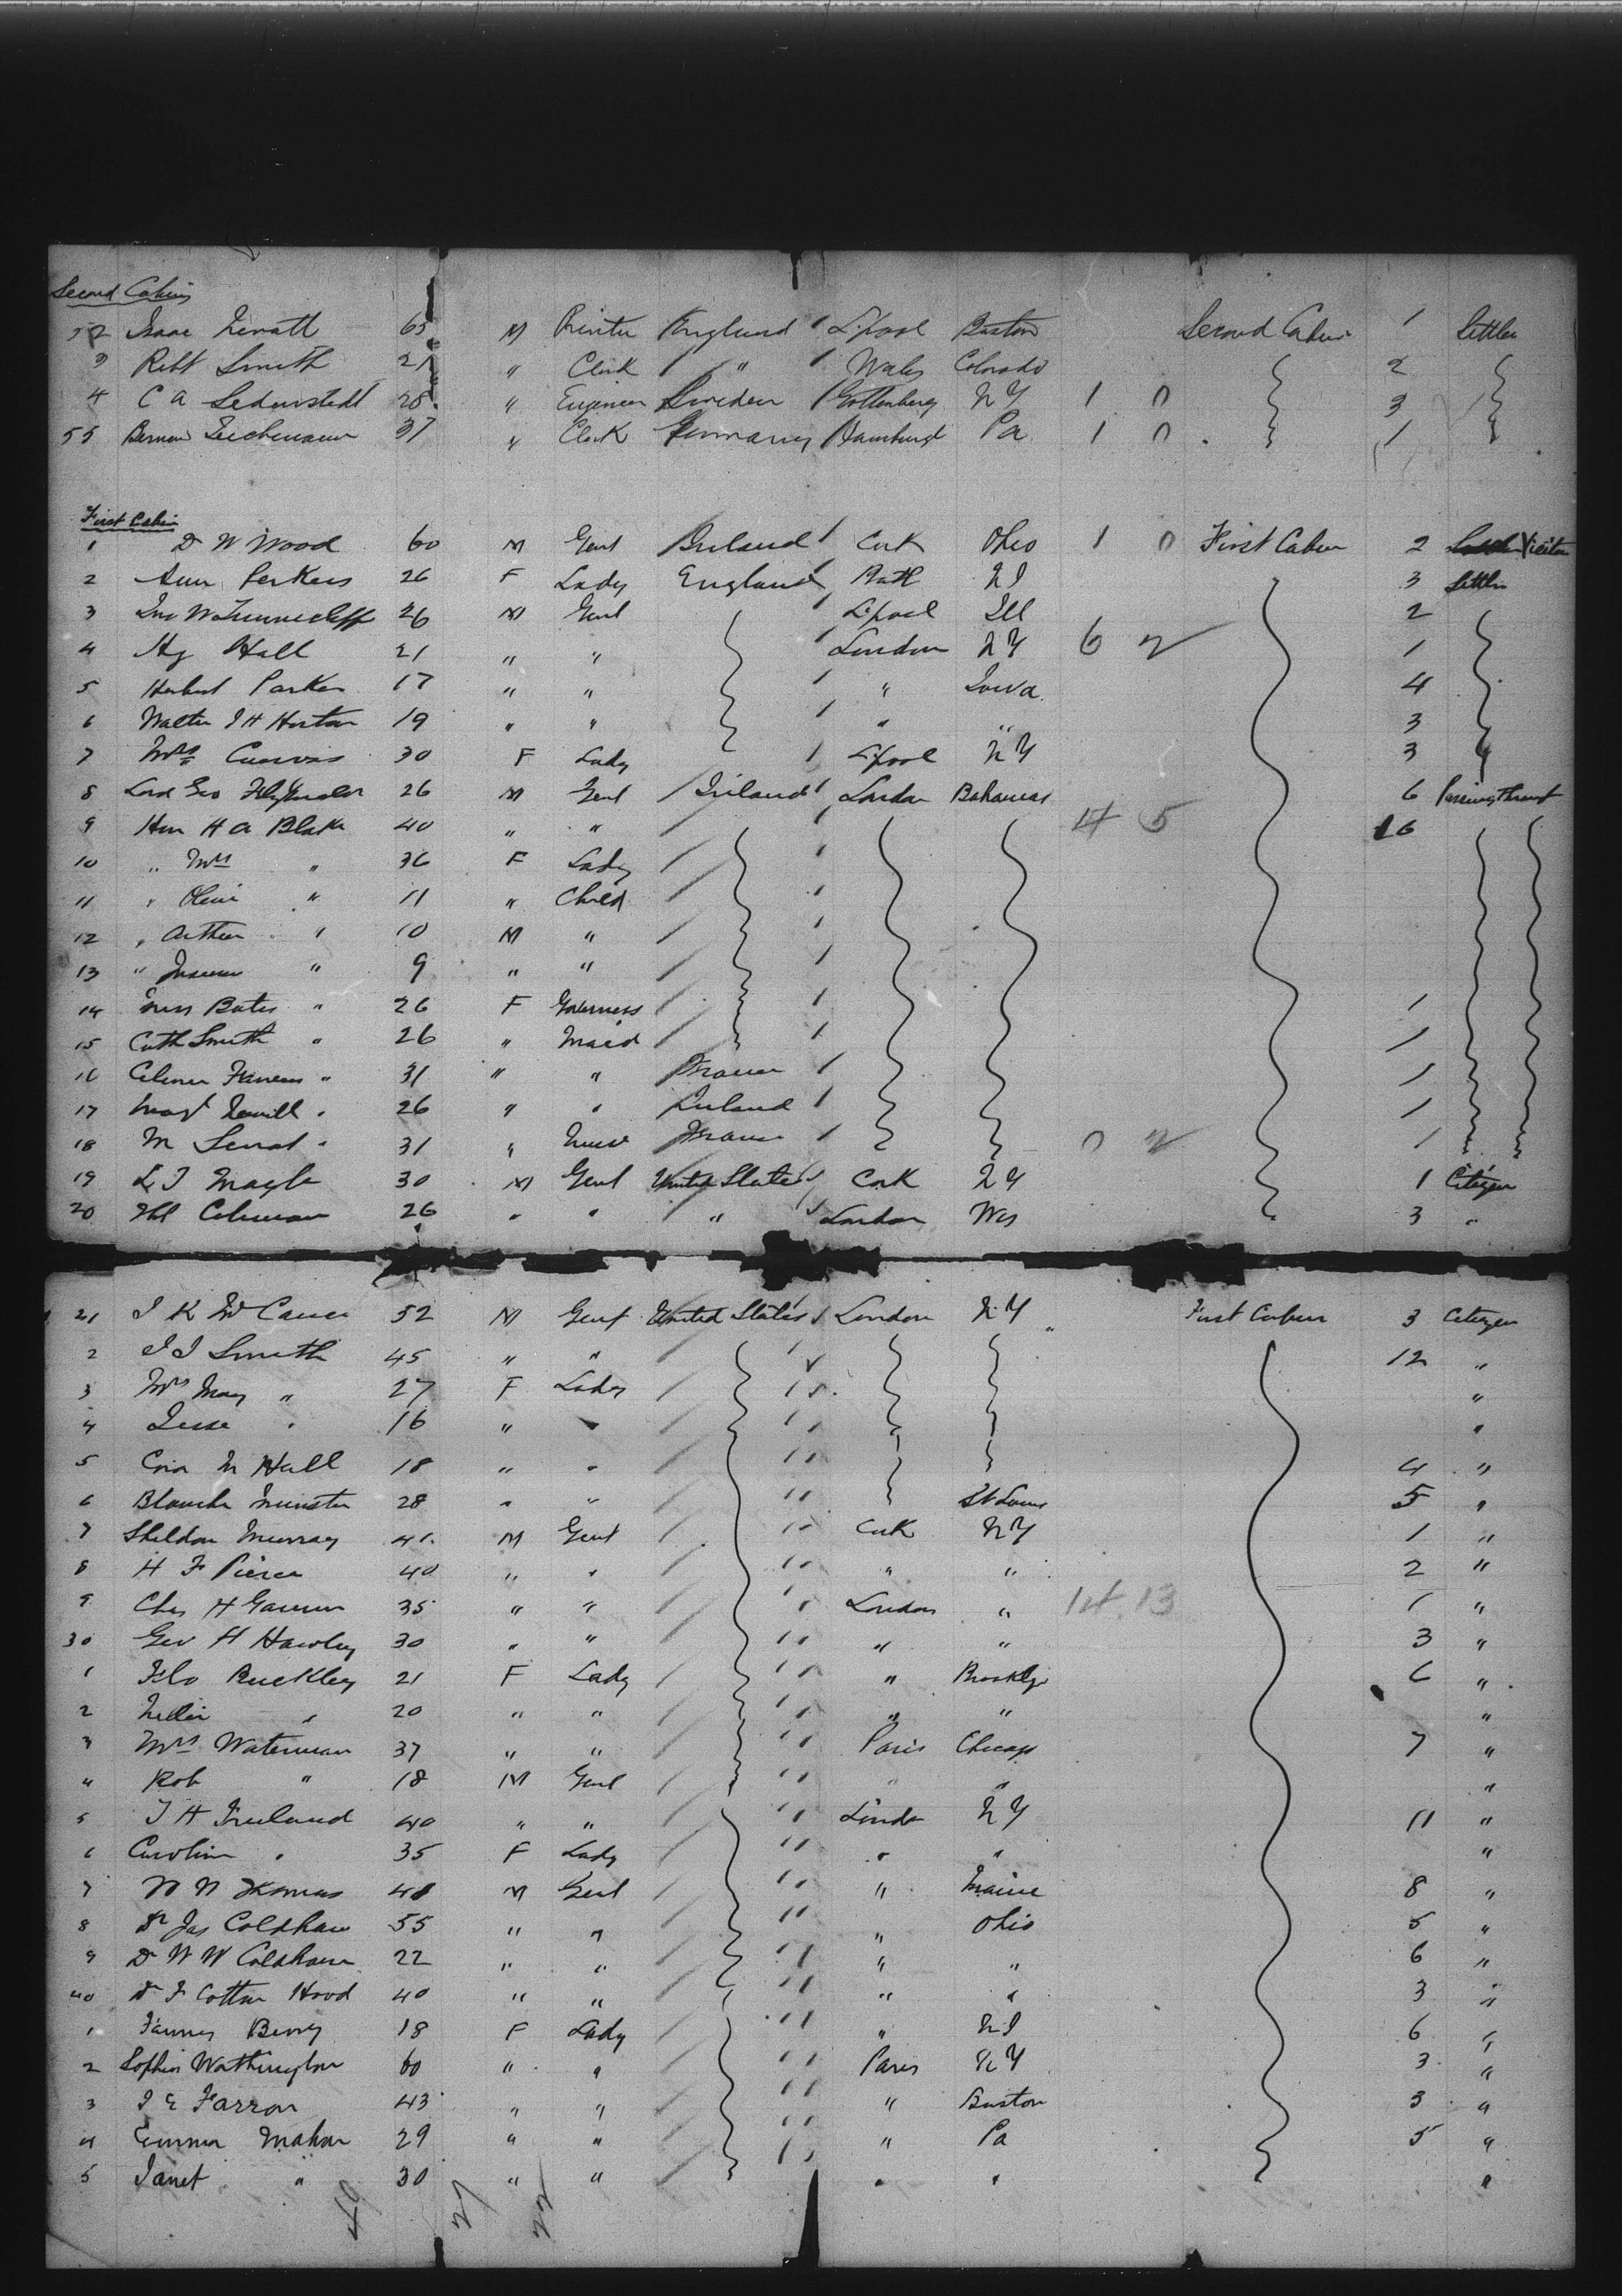 Second Cabin
52 Isaac 65 M Printer England L.pool Boston Second Cabin 1 Settler
3 Robt Smith 21 " Clerk " Wales Colorado 2
4 C A Sederstedt 28 " Engineer Sweden Gottenberg N Y 1 0 3
55 37 " Clerk Germany Hamburgh Pa 1 0 1
First Cabin
1 Dr W Wood 60 M Gent Ireland Cork Ohio 1 0 First Cabin 2 Visitor
2 Ann Perkins 26 F Lady England Bath N J 3 Settler
3 Jno W Tunnecliff 26 M Gent L.pool Ill 2
4 Hy Hall 21 " " London N Y 6 2 1
5 Herbert Parker 17 " " " Iowa 4
6 Walter J H Horton 19 " " " " 3
7 Mrs 30 F Lady L.pool N Y 3
8 Lord Geo Fitzgerald 26 M Gent Ireland London Bahamas 6 Passing through
9 Hon H A Blake 40 " " 4 5 16
10 " Mrs " 36 F Lady
11 " Olive " 11 " Child
12 " Arthur " 10 M "
13 " " 9 " "
14 Miss Bates " 26 F Governess 1
15 Cath Smith " 26 " Maid 1
16 " 31 " " France 1
17 Magt " 26 " " Ireland 1
18 M " 31 " Nurse France 0 2 1
19 L J 30 M Gent United States Cork N Y 1 Citizen
20 Coleman 26 " " " London Wis 3 "
21 J K 52 M Gent United States London N Y First Cabin 3 Citizen
2 J J Smith 45 " " 12 "
3 Mrs May " 27 F Lady "
4 Jesse " 16 " "
5 Cora M Hall 18 " " 4 "
6 Blanche 28 " " St Louis 5 "
7 Sheldon Murray 41 M Gent Cork N Y 1 "
8 H F Pierce 40 " " " " 2 "
9 Chas H 35 " " London " 14 13 1 "
30 Geo H Hawley 30 " " " " 3 "
1 Flo Buckley 21 F Lady " Brooklyn 6 "
2 Nellie " 20 " " " " "
3 Mrs Waterman 37 " " Paris Chicago 7 "
4 Rob " 18 M Gent " " "
5 J H Freeland 40 " " London N Y 11 "
6 Caroline " 35 F Lady " " "
7 W W Thomas 48 M Gent " Maine 8 "
8 Dr Jas 55 " " " Ohio 5 "
9 Dr W W 22 " " " " 6 "
40 Dr F Cotton Hood 40 " " " " 3 "
1 Fanny Berry 18 F Lady " N J 6 "
2 Sophia Worthington 60 " " Paris N Y 3 "
3 J E Farron 43 " " " Boston 3 "
4 Emma Mahon 29 " " " Pa 5 "
5 Janet " 30 " " " " "
49 27 22